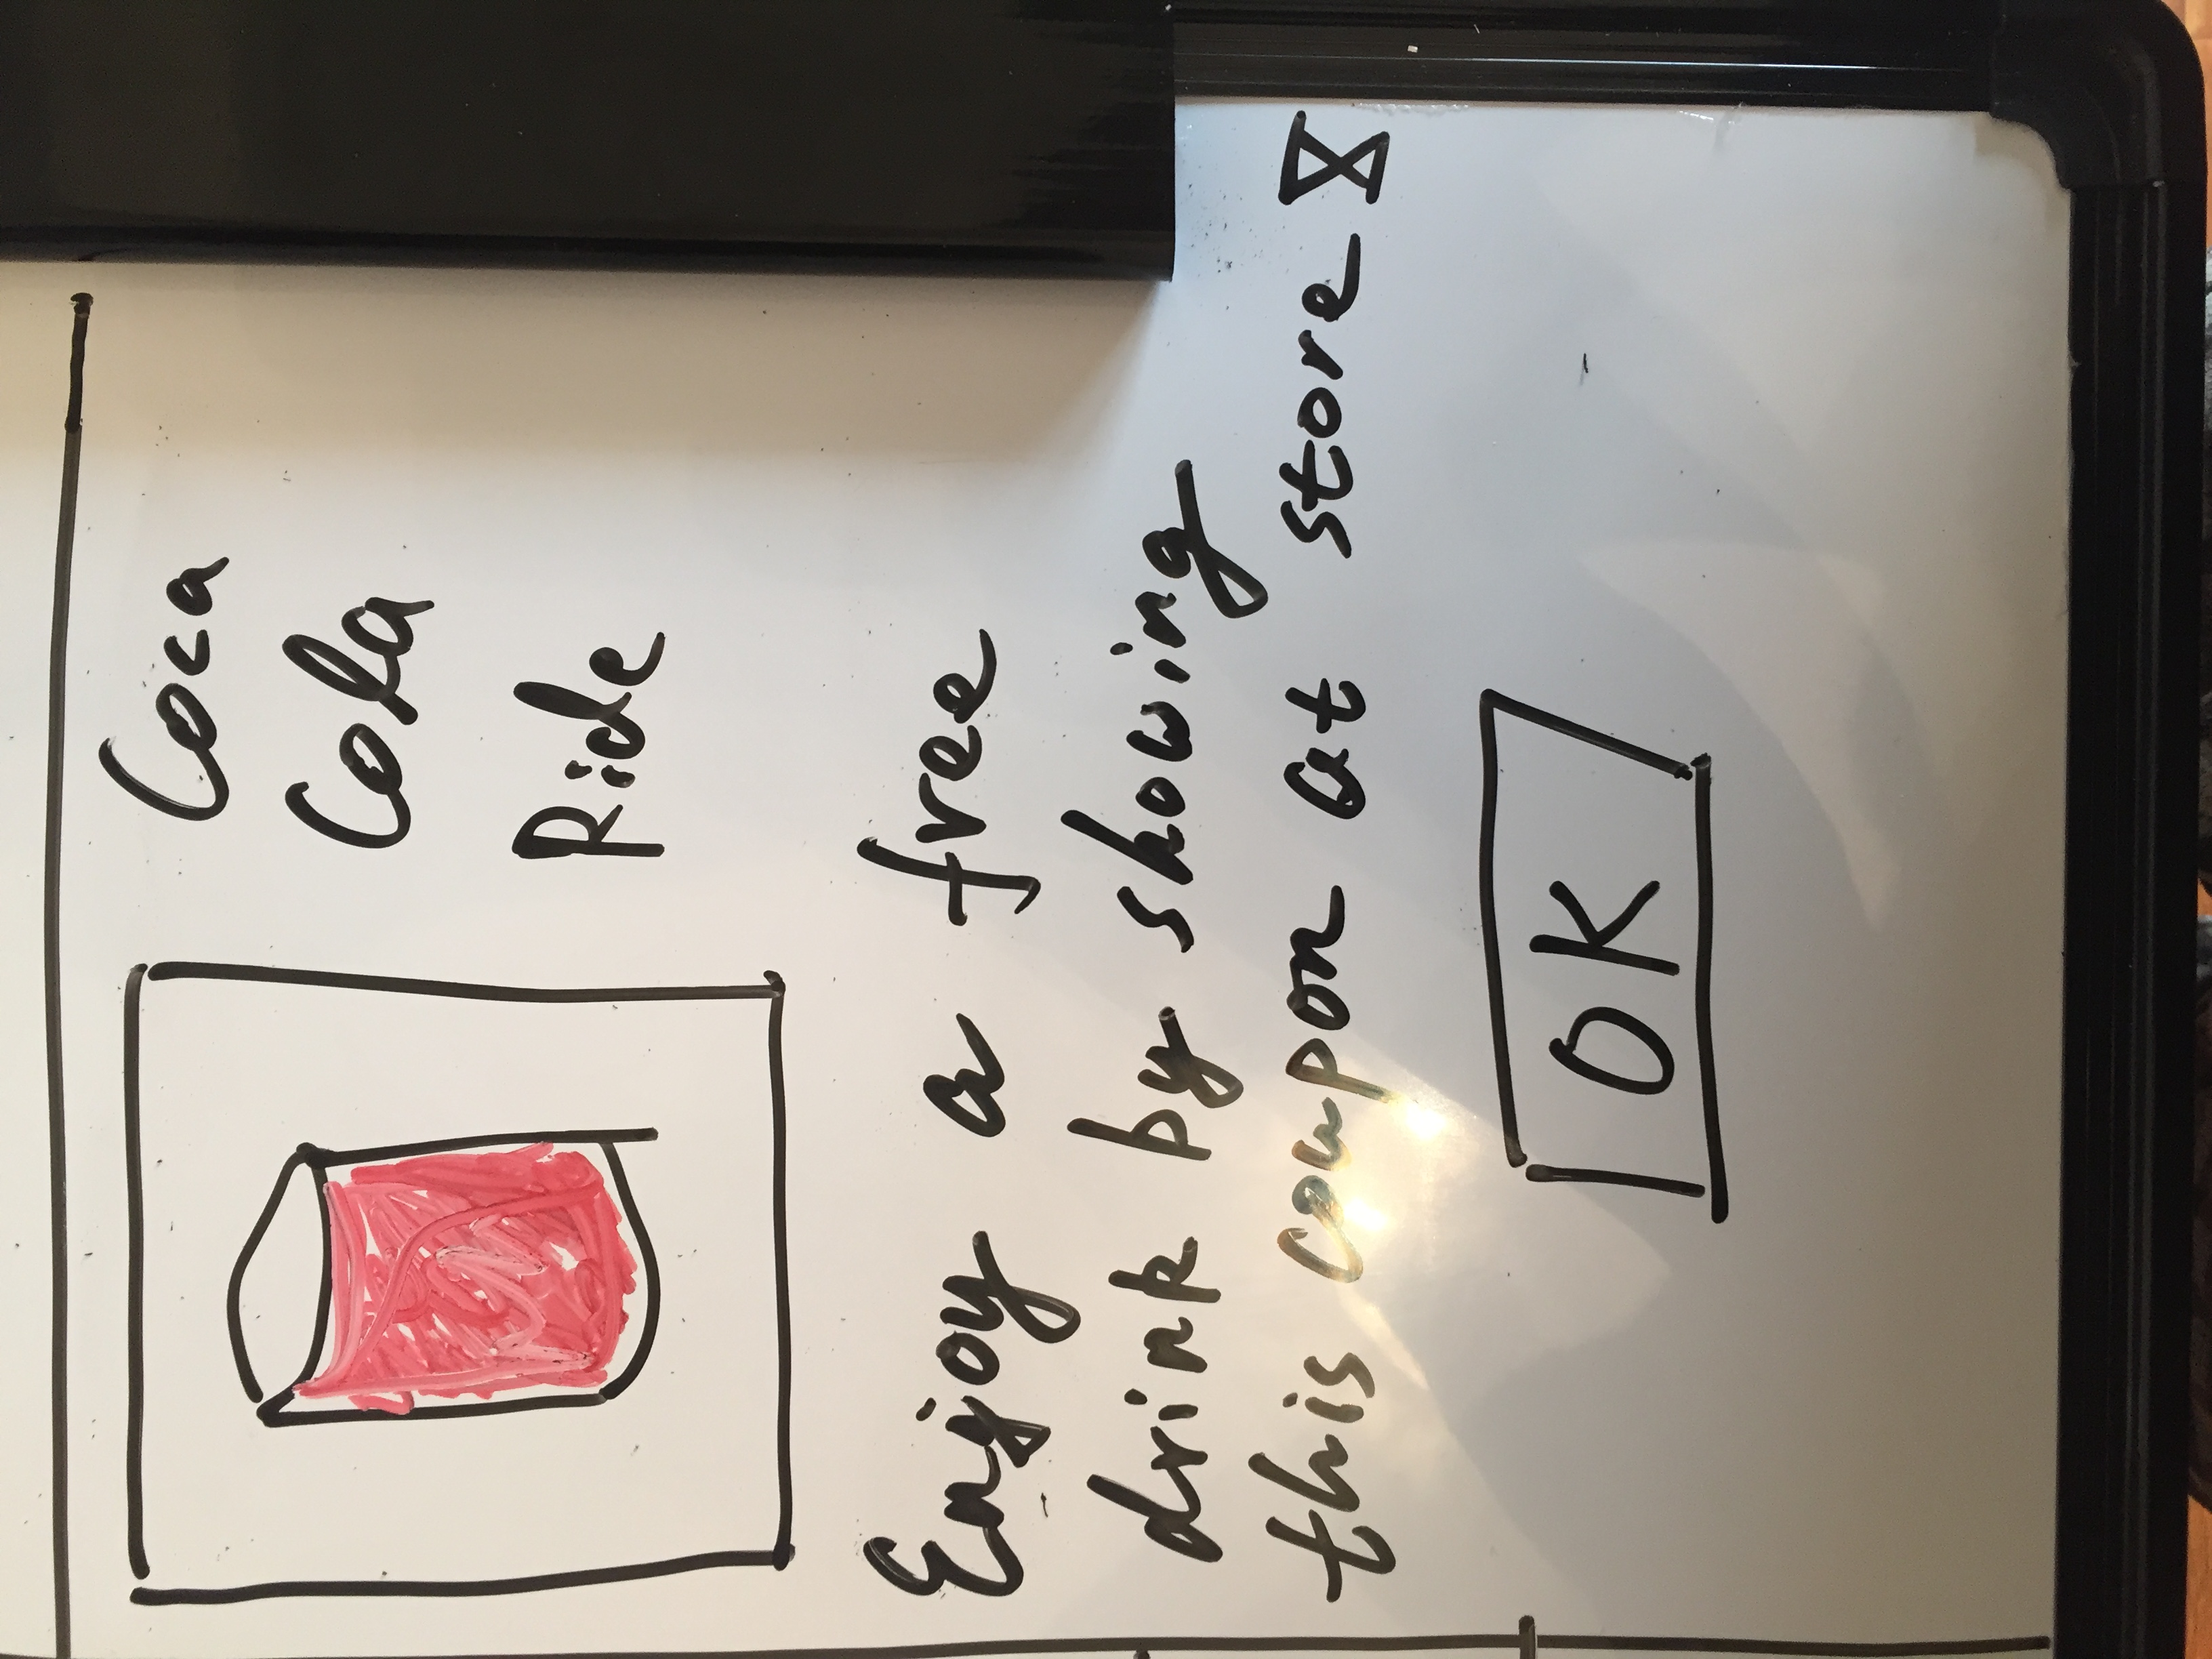 Coca
Cola
Ride
Enjoy a free
drink by showing
this coupon at store X
OK